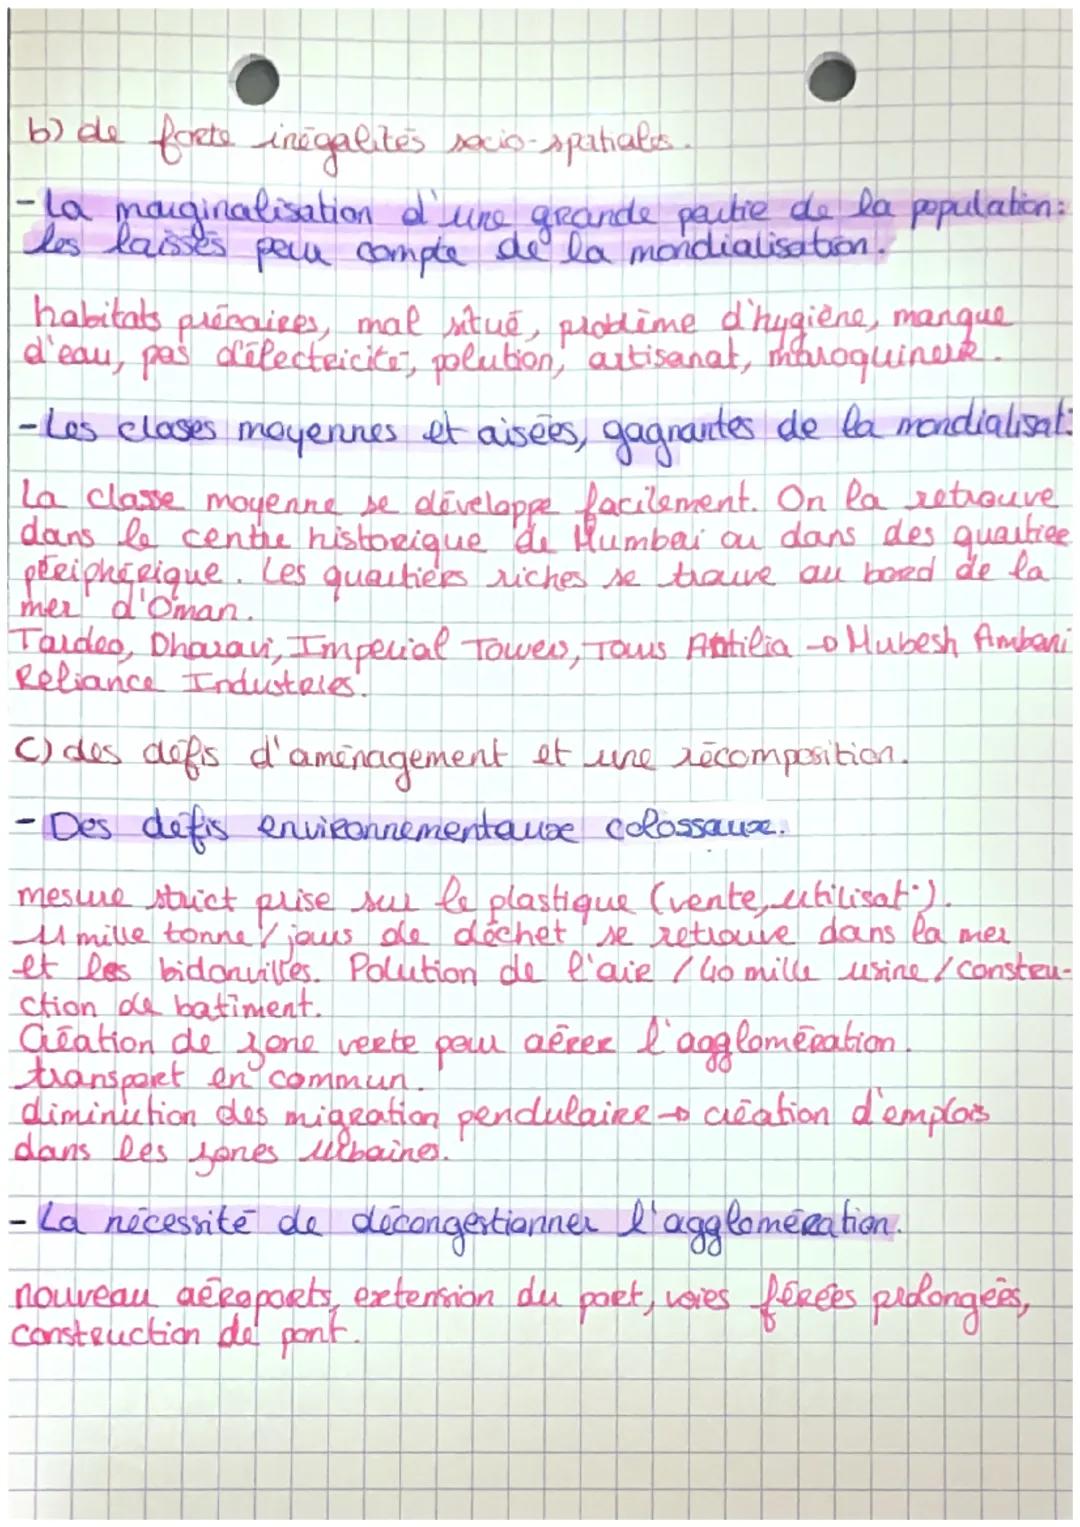 b) de forte inégalités socio-spatiales.
- La marginalisation d'une grande partie de la population:
les laissés pour compte de la mondialisation.
habitats précaires, mal situé, problème d'hygiène, manque
d'eau, pas d'électricité, polution, artisanat, maroquinerie.
- Les clases moyennes et aisées, gagnantes de la mondialisat°
La classe moyenne se développe facilement. On la retrouve
dans le centre historique de Mumbai ou dans des quartier
périphérique. Les quartiers riches se trouve au bord de la
mer d'Oman.
Tardeo, Dharavi, Imperial Towers, Tours Antilia → Mubesh Ambani
Reliance Industries.
C) des défis d'aménagement et une récomposition.
- Des défis environnementaux colossaux.
mesure strict prise sur le plastique (vente, utilisat°).
11 mille tonne / jours de déchet se retrouve dans la mer
et les bidonvilles. Polution de l'air / 40 mille usine / constru-
ction de batiment.
Création de zone verte pour aérer l'agglomération.
transport en commun.
diminution des migration pendulaire → création d'emplois
dans les zones urbaines.
- La nécessité de décongestionner l'agglomération.
nouveau aéroports, extension du port, voies férées prolongées,
construction de pont.